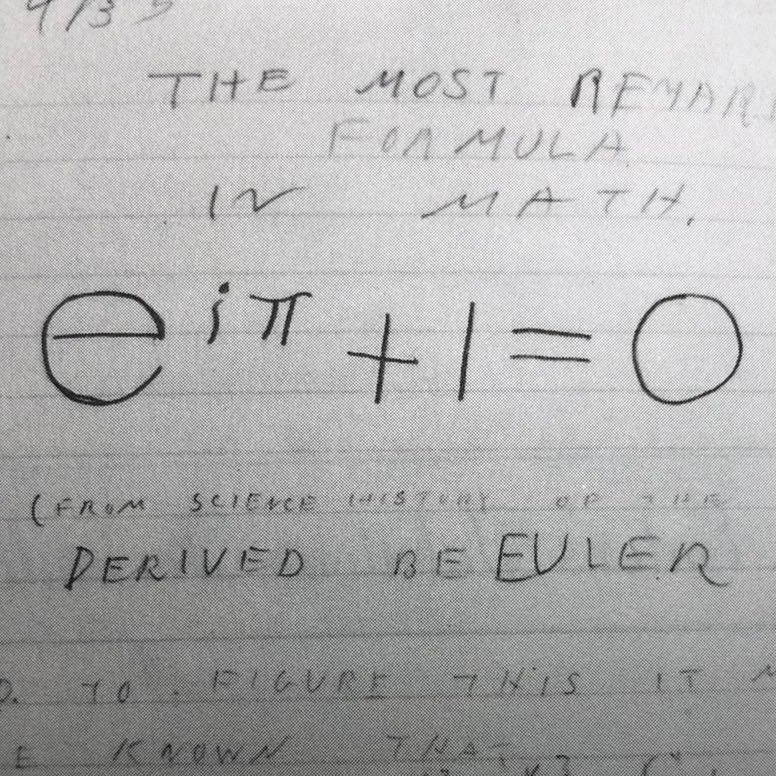 4/33
THE MOST REMAR
FORMULA
IN MATH.
e^{iπ} + 1 = 0
(FROM SCIENCE HISTORY OF THE
DERIVED BE EULER
D. TO FIGURE THIS IT M
E KNOWN THAT